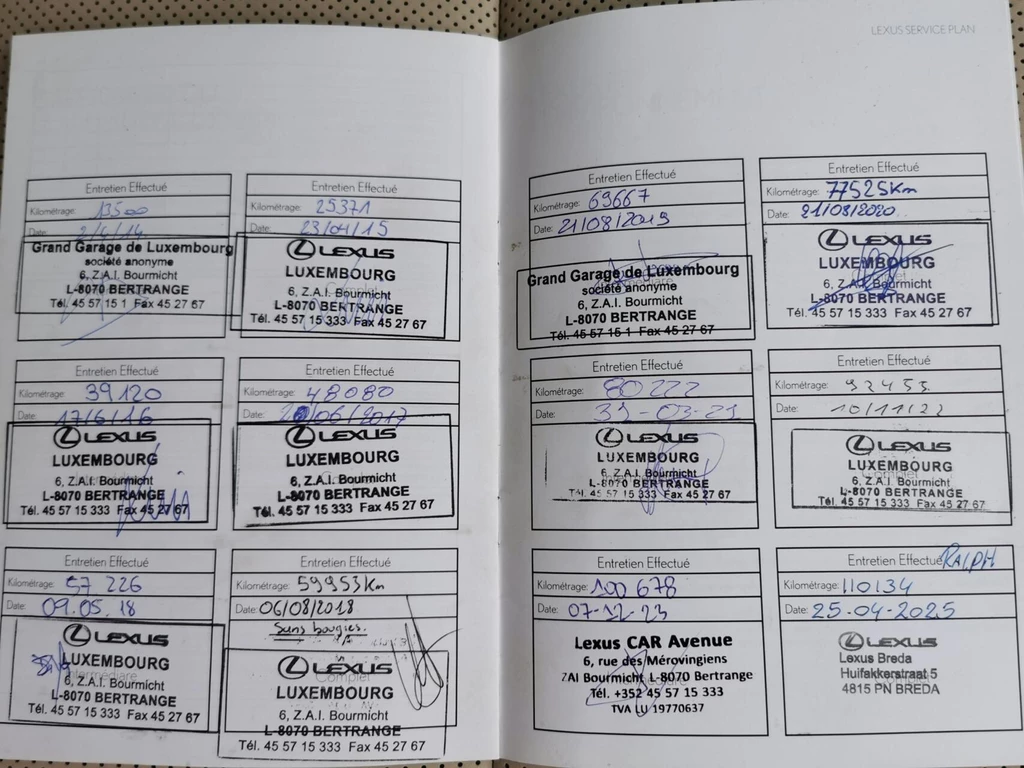 LEXUS SERVICE PLAN
Entretien Effectué
Kilométrage: 13500
Date: 2/4/14
Grand Garage de Luxembourg
société anonyme
6, Z.A.I. Bourmicht
L-8070 BERTRANGE
Tél. 45 57 15 1 Fax 45 27 67
Entretien Effectué
Kilométrage: 25371
Date: 23/04/15
LEXUS
LUXEMBOURG
Complet
6, Z.A.I. Bourmicht
L-8070 BERTRANGE
Tél. 45 57 15 333 Fax 45 27 67
Entretien Effectué
Kilométrage: 39120
Date: 17/6/16
LEXUS
LUXEMBOURG
6, Z.A.I. Bourmicht
L-8070 BERTRANGE
Tél. 45 57 15 333 Fax 45 27 67
Entretien Effectué
Kilométrage: 48080
Date: /06/2017
LEXUS
LUXEMBOURG
6, Z.A.I. Bourmicht
L-8070 BERTRANGE
Tél. 45 57 15 333 Fax 45 27 67
Entretien Effectué
Kilométrage: 57 226
Date: 09.05.18
LEXUS
LUXEMBOURG
Intermédiaire
6, Z.A.I. Bourmicht
L-8070 BERTRANGE
Tél. 45 57 15 333 Fax 45 27 67
Entretien Effectué
Kilométrage: 59953Km
Date: 06/08/2018
Sans bougies.
LEXUS
Complet
LUXEMBOURG
6, Z.A.I. Bourmicht
L-8070 BERTRANGE
Tél. 45 57 15 333 Fax 45 27 67
Entretien Effectué
Kilométrage: 69667
Date: 21/08/2019
Grand Garage de Luxembourg
Intermédiaire
société anonyme
6, Z.A.I. Bourmicht
L-8070 BERTRANGE
Tél. 45 57 15 1 Fax 45 27 67
Entretien Effectué
Kilométrage: 77525Km
Date: 21/08/2020
LEXUS
LUXEMBOURG
Complet
6, Z.A.I. Bourmicht
L-8070 BERTRANGE
Tél. 45 57 15 333 Fax 45 27 67
Entretien Effectué
Kilométrage: 80222
Date: 31-03-21
LEXUS
LUXEMBOURG
6, Z.A.I. Bourmicht
L-8070 BERTRANGE
Tél. 45 57 15 333 Fax 45 27 67
Entretien Effectué
Kilométrage: 92453
Date: 10/11/22
LEXUS
LUXEMBOURG
Complet
6, Z.A.I. Bourmicht
L-8070 BERTRANGE
Tél. 45 57 15 333 Fax 45 27 67
Entretien Effectué
Kilométrage: 100 678
Date: 07-12-23
Lexus CAR Avenue
6, rue des Mérovingiens
ZAI Bourmicht L-8070 Bertrange
Intermédiaire
Tél. +352 45 57 15 333
TVA LU 19770637
Entretien Effectué RALPH
Kilométrage: 110134
Date: 25-04-2025
LEXUS
Lexus Breda
Huifakkerstraat 5
Complet
4815 PN BREDA